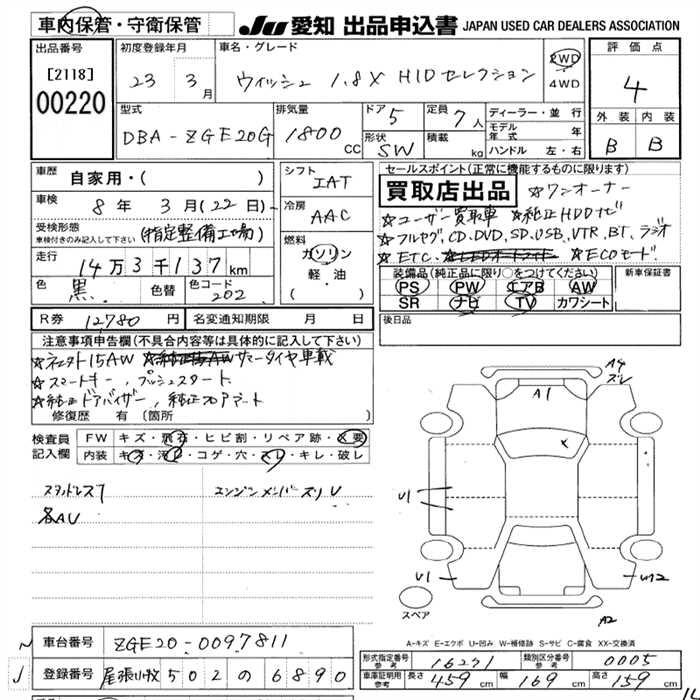 車内保管・守衛保管
JU 愛知 出品申込書 JAPAN USED CAR DEALERS ASSOCIATION
出品番号 [2118] 00220
初度登録年月 23 3月
車名・グレード ウィッシュ 1.8X HIDセレクション
2WD 4WD
評価点 4
外装 B 内装 B
型式 DBA-ZGE20G
排気量 1800CC
ドア 5
形状 SW
定員 7人
積載 kg
ディーラー・並行
モデル年式 年
ハンドル 左・右
車歴 自家用・( )
車検 8年 3月(22日)
受検形態 車検付きのみ記入して下さい (指定整備工場)
走行 14万3千137km
色 黒 色替 色コード 202
シフト IAT
冷房 AAC
燃料 ガソリン 軽・油 ( )
セールスポイント(正常に機能するものに限ります)
買取店出品 ☆ワンオーナー
☆ユーザー買取車 ☆純正HDDナビ
☆フルセグ,CD,DVD,SD,USB,VTR,BT,ラジオ
☆ETC, ☆ECOモード
装備品(純正品に限り〇をつけてください) 新車保証書
PS PW エアB AW
SR ナビ TV カワシート
R券 12780円 名変通知期限 月 日
後日品
注意事項申告欄(不具合内容等は具体的に記入して下さい)
☆15AW サマータイヤ車載
☆スマートキー,プッシュスタート
☆純正ドアバイザー,純正フロアマット
修復歴 有(箇所 )
検査員記入欄
FW キズ・飛石・ヒビ割・リペア跡・X要
内装 キズ・汚レ・コゲ・穴・スレ・キレ・破レ
スタッドレス7 エンジンメンバーズリU
各AU
A1
A4
ズレ
X
U1
U1
W2
スペア
A2
A-キズ E-エクボ U-凹み W-補修跡 S-サビ C-腐食 XX-交換済
車台番号 ZGE20-0097811
登録番号 尾張小牧502の6890
形式指定番号 参考 16231 類別区分番号 参考 0005
車庫証明用 参考 長さ 459cm 幅 169cm 高さ 159cm